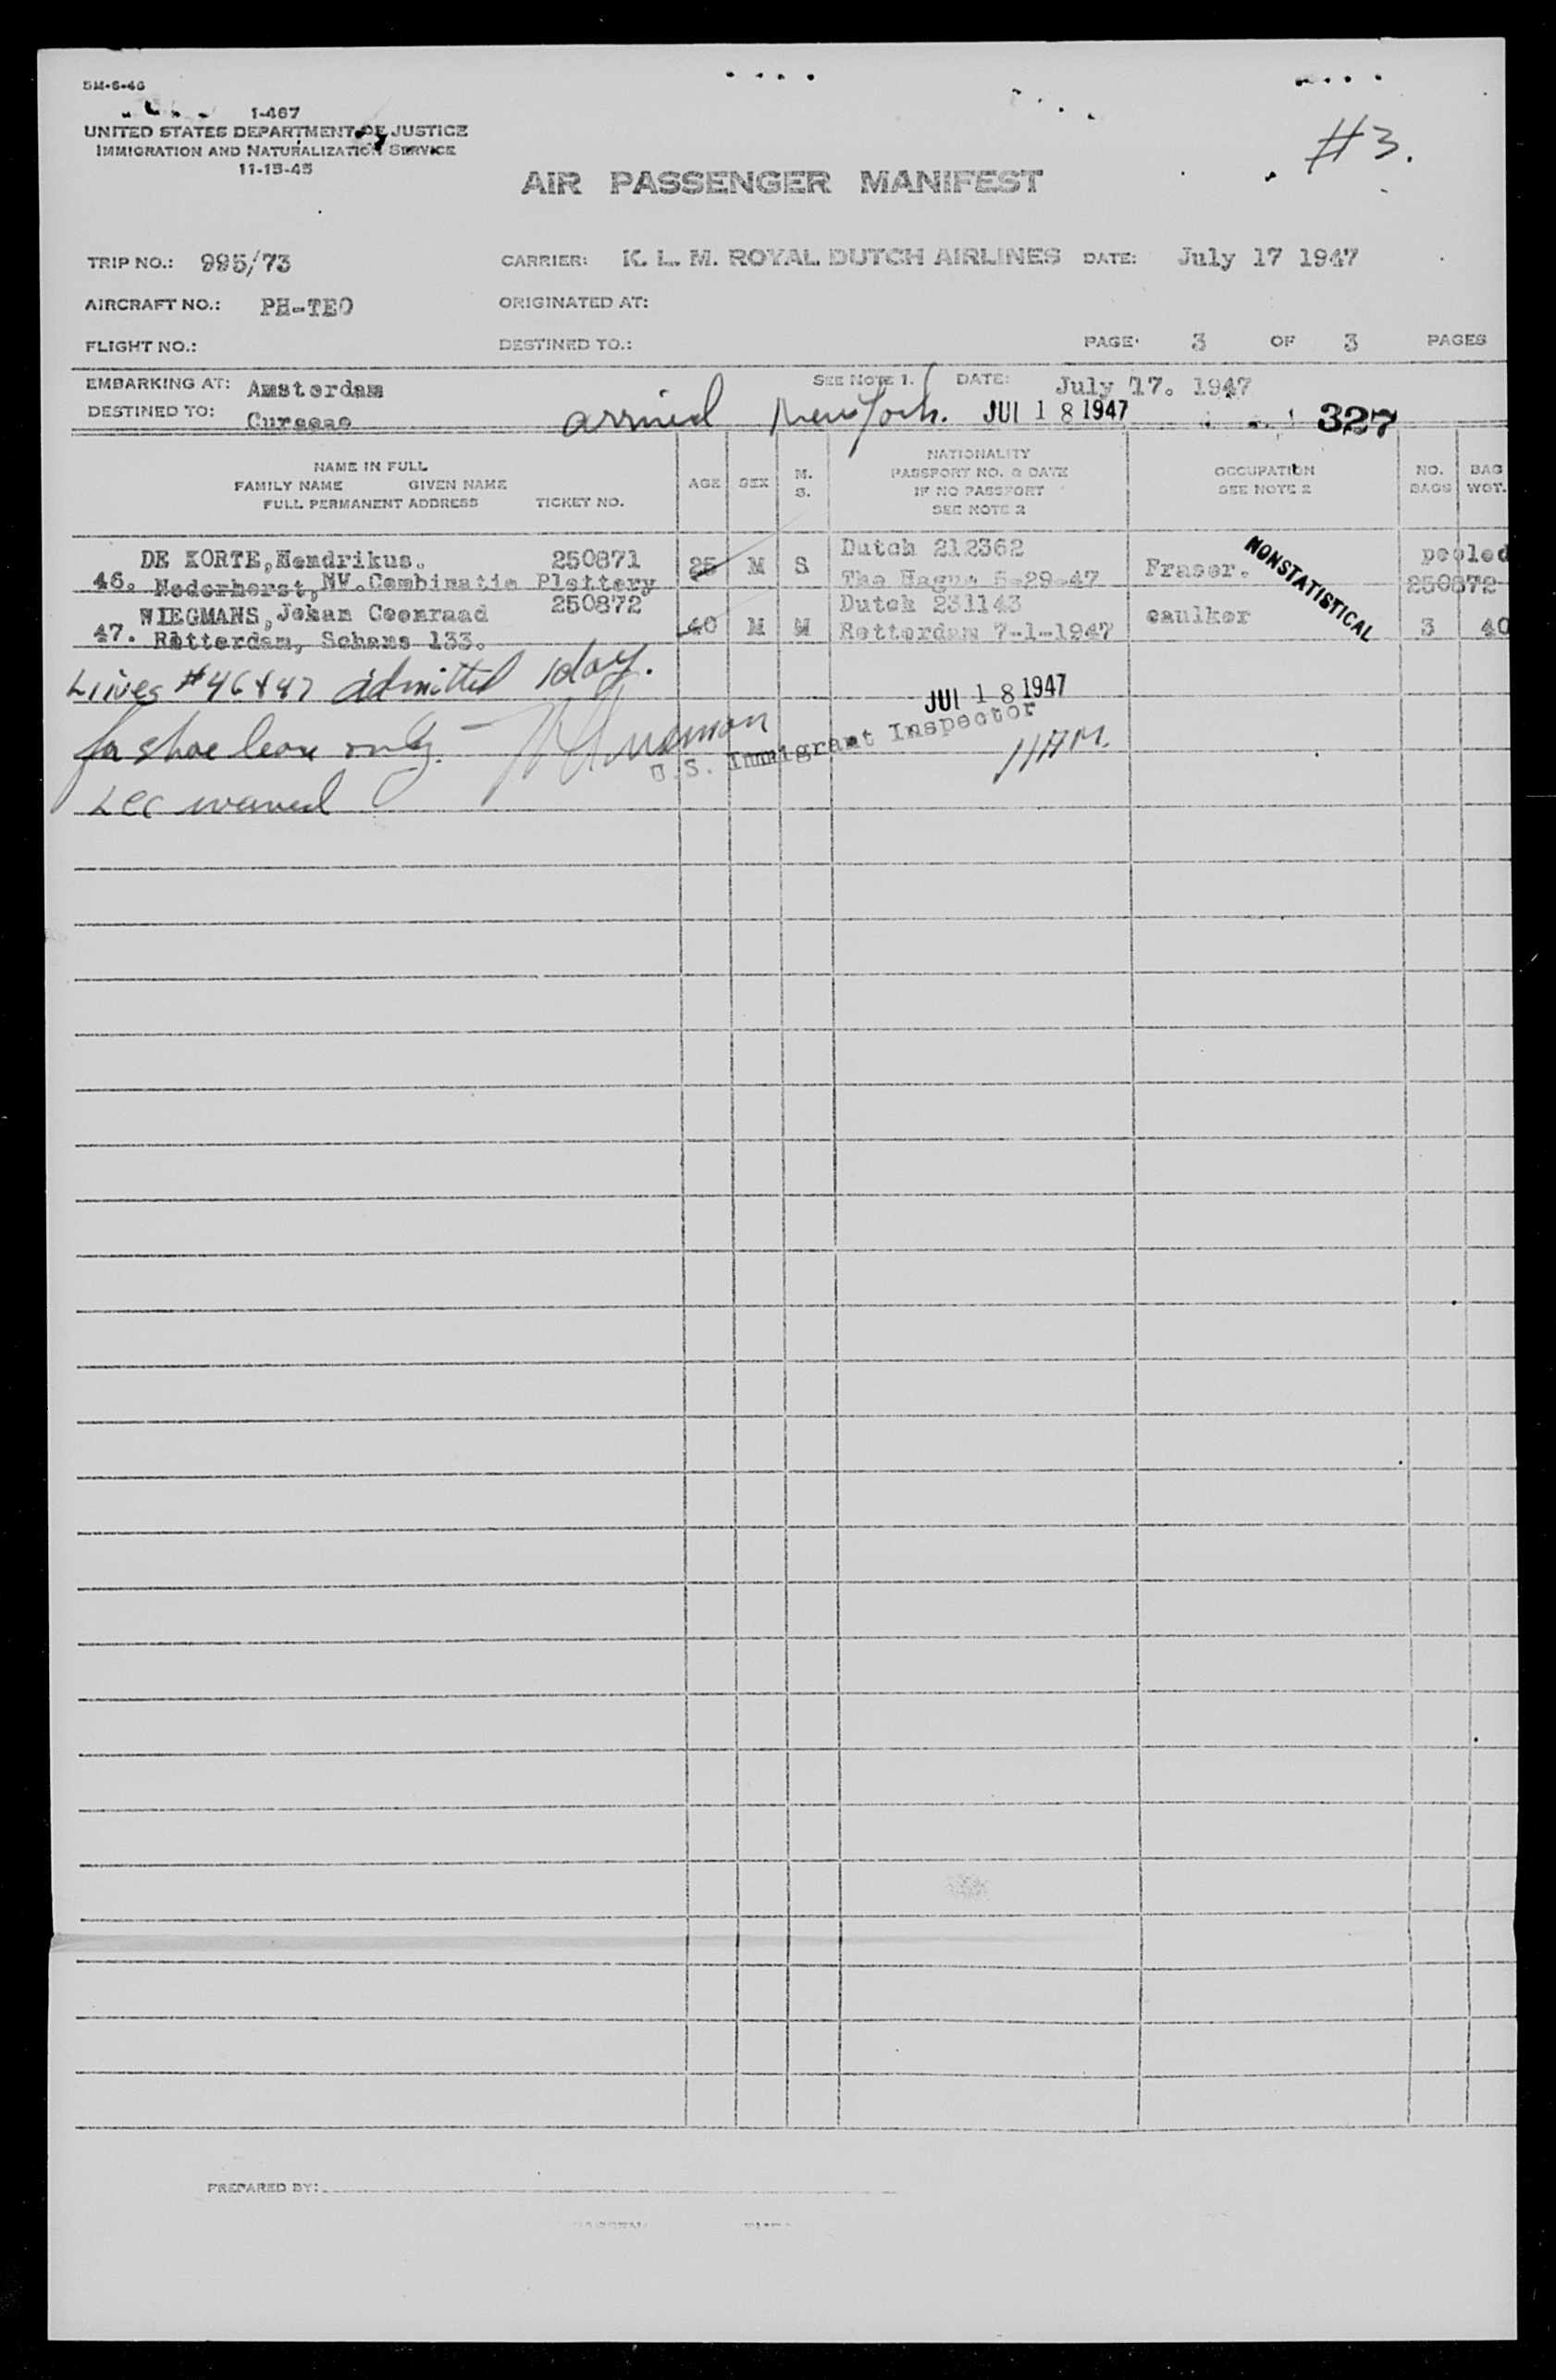 5M-6-46
1-467
UNITED STATES DEPARTMENT OF JUSTICE
IMMIGRATION AND NATURALIZATION SERVICE
11-15-45
#3.
AIR PASSENGER MANIFEST
TRIP NO.: 995/73 CARRIER: K. L. M. ROYAL DUTCH AIRLINES DATE: July 17 1947
AIRCRAFT NO.: PH-TEO ORIGINATED AT:
FLIGHT NO.: DESTINED TO.: PAGE 3 OF 3 PAGES
EMBARKING AT: Amsterdam SEE NOTE 1. DATE: July 17. 1947
DESTINED TO: Curacao arrived New York. JUL 18 1947 327
NAME IN FULL
FAMILY NAME GIVEN NAME
FULL PERMANENT ADDRESS TICKET NO.
AGE SEX M. S.
NATIONALITY
PASSPORT NO. & DATE
IF NO PASSPORT
SEE NOTE 2
OCCUPATION
SEE NOTE 2
NO. BAGS
BAG WGT.
DE KORTE, Hendrikus. 250871 25 M S Dutch 212362 Fraser. pooled
46. Nederhorst, NV. Combinatie Plettery The Hague 5-29-47 250872
NONSTATISTICAL
WIEGMANS, Johan Coenraad 250872 40 M M Dutch 231143 caulker 3 40
47. Rotterdam, Schans 133. Rotterdam 7-1-1947
Lines #46 & 47 admitted 1 day.
for shore leave only.
JUL 18 1947
U.S. Immigrant Inspector
waived
PREPARED BY: